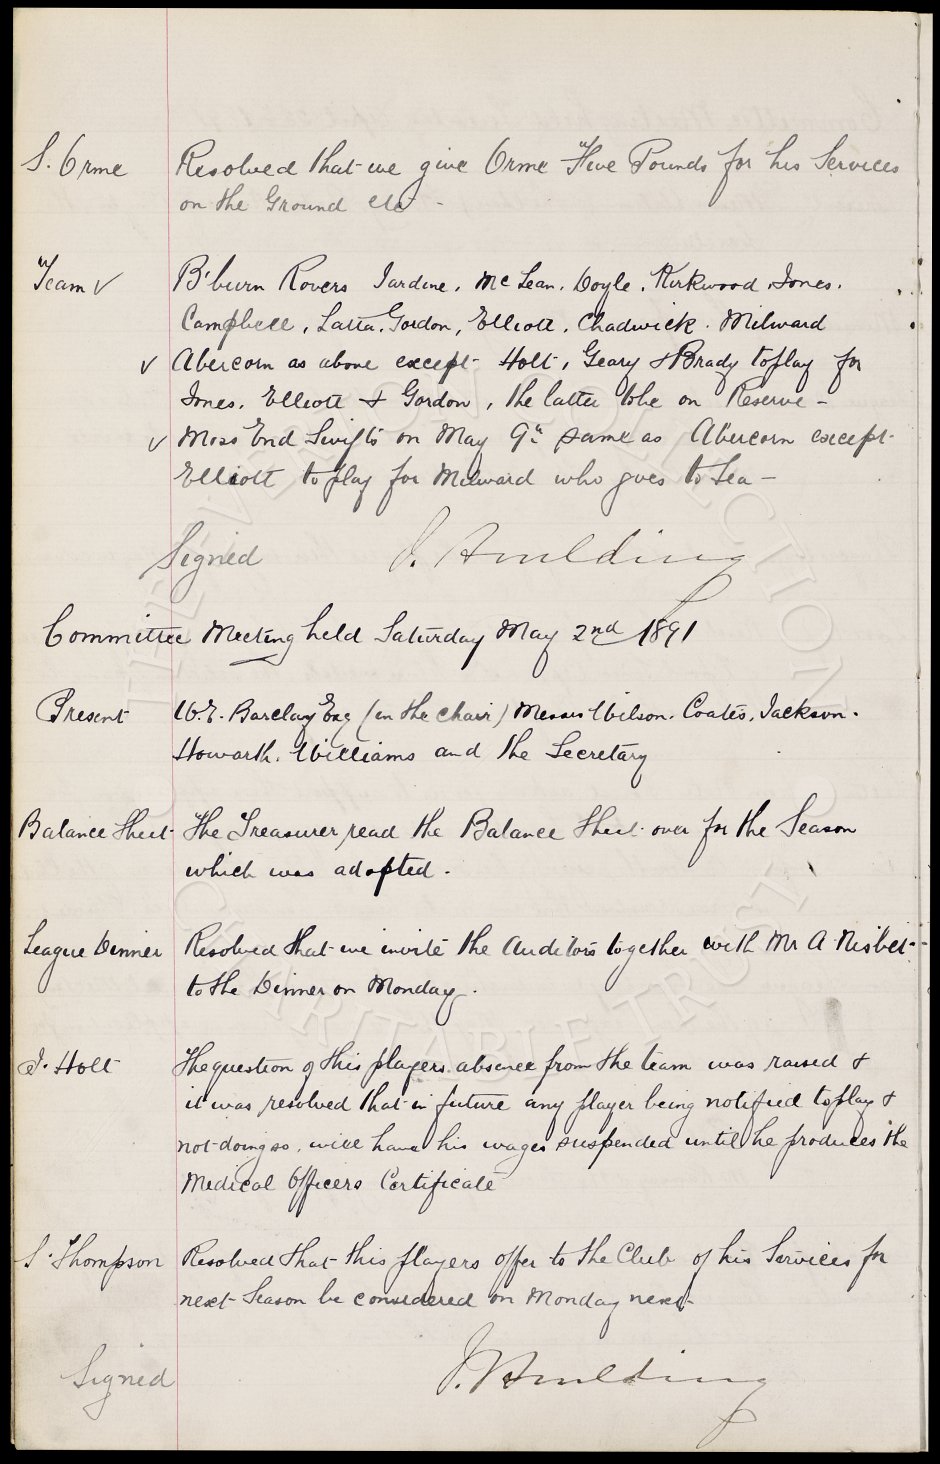 S. Orme Resolved that we give Orme Five Pounds for his Services
on the Ground etc -
Team ✓ B'burn Rovers Jardine. McLean. Doyle. Kirkwood. Jones.
Campbell, Latta. Gordon, Elliott. Chadwick. Milward
✓ Abercorn as above except Holt, Geary & Brady to play for
Jones. Elliott & Gordon, the latter to be on Reserve -
✓ Moss End Swifts on May 9th same as Abercorn except
Elliott to play for Milward who goes to Sea -
Signed J. Houlding
Committee Meeting held Saturday May 2nd 1891
Present W.E. Barclay Esq (in the chair) Messrs Wilson. Coates. Jackson.
Howarth. Williams and the Secretary
Balance Sheet The Treasurer read the Balance Sheet over for the Season
which was adopted.
League Dinner Resolved that we invite the Auditors together with Mr A Nisbet
to the Dinner on Monday.
J. Holt The question of this players absence from the team was raised &
it was resolved that in future any player being notified to play &
not doing so, will have his wages suspended until he produces the
Medical Officers Certificate
S. Thompson Resolved that this players offer to the Club of his Services for
next Season be considered on Monday next
Signed J. Houlding
EVERTON COLLECTION
CHARITABLE TRUST